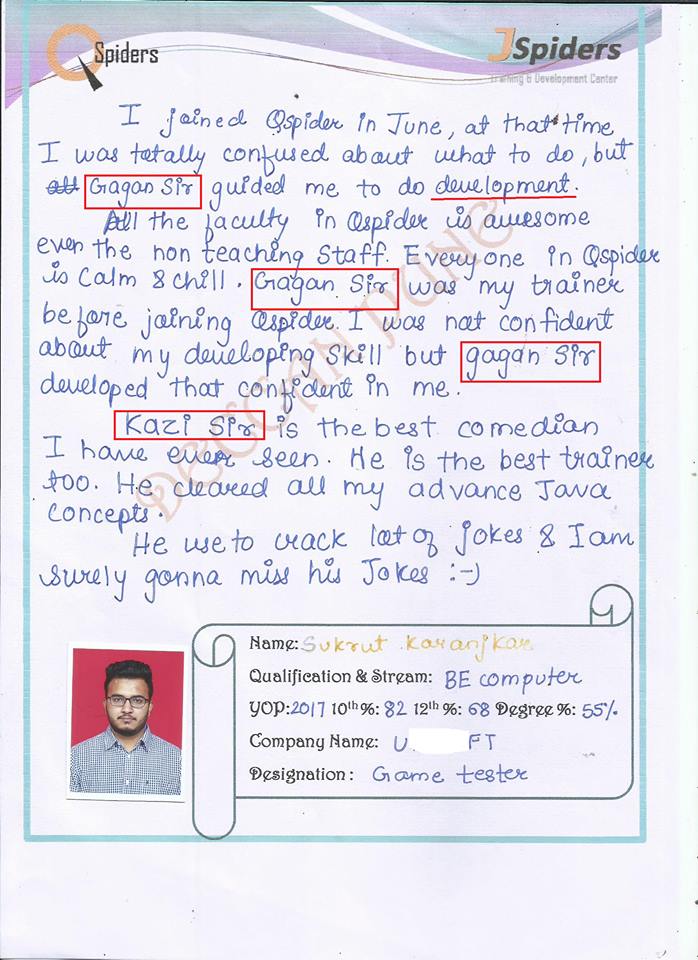 QSpiders
JSpiders
Training & Development Center
I joined Qspider in June, at that time
I was totally confused about what to do, but
all Gagan Sir guided me to do development.
All the faculty in Qspider is awesome
even the non teaching Staff. Everyone in Qspider
is calm & chill. Gagan Sir was my trainer
before joining Qspider. I was not confident
about my developing skill but gagan Sir
developed that confident in me.
Kazi Sir is the best comedian
I have ever seen. He is the best trainer
too. He cleared all my advance Java
concepts.
He use to crack lot of jokes & I am
surely gonna miss his Jokes :-)
DECCAN PUNE
Name: Sukrut Karanjkar
Qualification & Stream: BE computer
YOP: 2017 10th %: 82 12th %: 68 Degree %: 55%
Company Name: U FT
Designation: Game tester